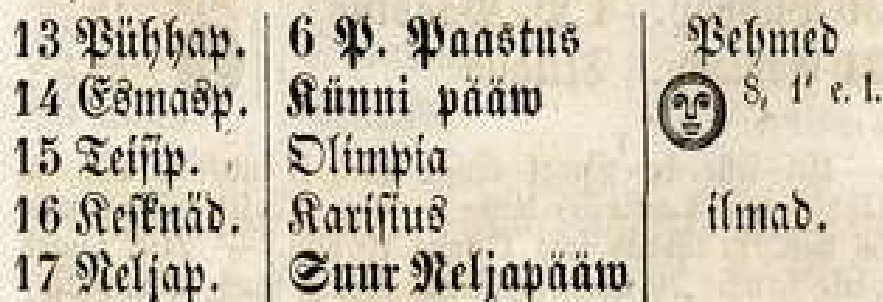 13 Pühhap. 6 P. Paastus Pehmed
14 Esmasp. Künni pääw 8, 1' e. l.
15 Teisip. Olimpia
16 Kesknäd. Karisius ilmad.
17 Neljap. Suur Neljapääw